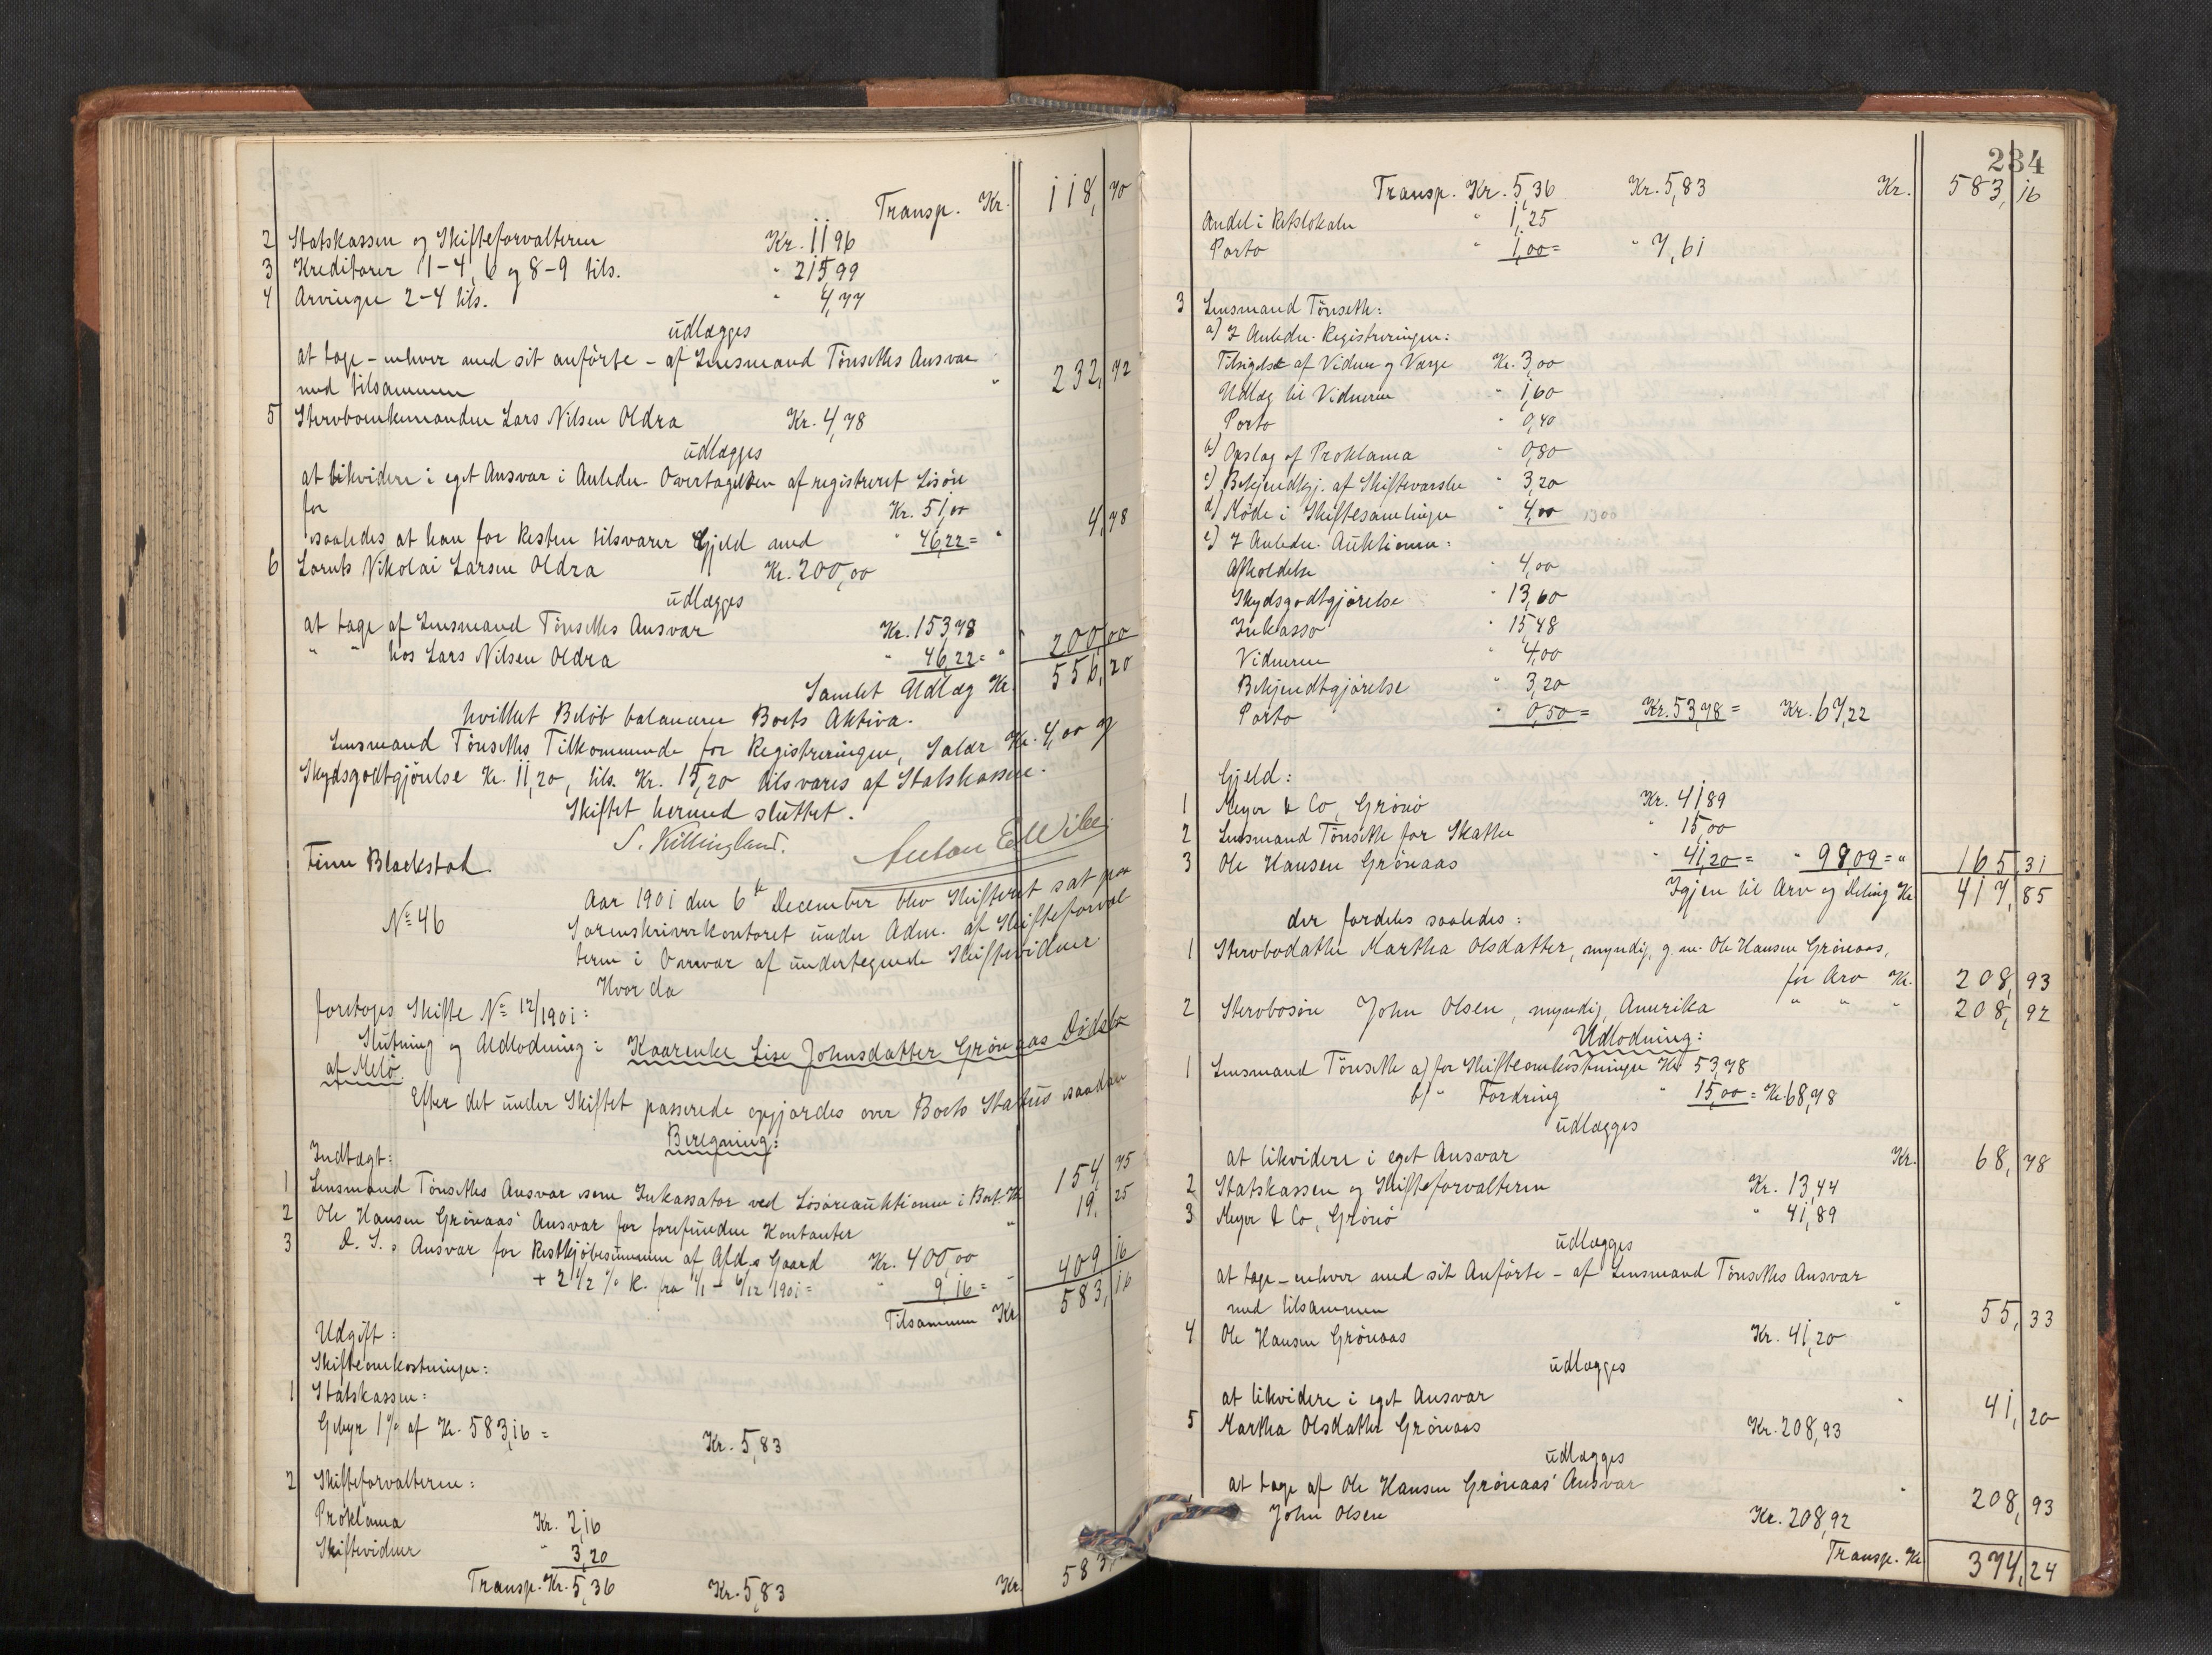 Transp. Kr. 118,70
2 Statskassen og Skifteforvalteren Kr. 11,96
3 Kreditorer 1-4, 6 og 8-9 tils. " 215,99
4 Arvinger 2-4 tils. " 4,77
udlægges
at tage - enhver med sit anførte - af Lensmand Tönseths Ansvar
med tilsammen " 232,72
5 Stervboenkemanden Lars Nilsen Oldra Kr. 4,78
udlægges
at likvidere i eget Ansvar i Anledn. Overtagelsen af registreret Lösöre
for Kr. 51,00
saaledes at han for Resten tilsvarer Gjeld med " 46,22 = " 4,78
6 Lorents Nikolai Larsen Oldra Kr. 200,00
udlægges
at tage af Lensmand Tönseths Ansvar Kr. 153,78
" " hos Lars Nilsen Oldra " 46,22 = " 200,00
Samlet Udlæg Kr. 556,20
hvilket Belöb balancerer Boets Aktiva.
Lensmand Tönseths Tilkommende for Registreringen, Salær Kr. 4,00 og
Skydsgodtgjörelse Kr. 11,20, tils. Kr. 15,20 tilsvares af Statskassen.
Skiftet hermed sluttet.
S. Killingland. Anton E. Wibe
Finn Blackstad.
Aar 1901 den 6te December blev Skifteret sat paa
No 46 Sorenskriverkontoret under Adm. af Skifteforval-
teren i Overvær af undertegnede Skiftevidner.
Hvor da
foretoges Skifte No 12/1901:
Slutning og Udlodning i Kaarenke Lise Johnsdatter Grönaas Dödsbo
af Melö.
Efter det under Skiftet passerede opgjordes over Boets Status saadan
Beregning:
Indtægt:
1 Lensmand Tönseths Ansvar som Inkassator ved Lösöreauktionen i Boet Kr. 154,75
2 Ole Hansen Grönaas' Ansvar for forefunden Kontanter " 19,25
3 D. S.s Ansvar for Restkjöbesummen af Afd.s Gaard Kr. 400,00
+ 2 1/2 % R. fra 1/1 - 6/12 1901 = " 9,16 = " 409,16
Tilsammen Kr. 583,16
Udgift:
Skifteomkostninger:
1 Statskassen:
Gebyr 1% af Kr. 583,16 = Kr. 5,83
2 Skifteforvalteren:
Proklama Kr. 2,16
Skiftevidner " 3,20
Transp. Kr. 5,36 Kr. 5,83 Kr. 583,
234
Transp. Kr. 5,36 Kr. 5,83 Kr. 583,16
Andel i Retslokale " 1,25
Porto " 1,00 = " 7,61
3 Lensmand Tönseth:
a) I Anledn. Registreringen:
Tilsigelse af Vidner og Værge Kr. 3,00
Udlæg til Vidnerne " 1,60
Porto " 0,40
b) Opslag af Proklama " 0,80
c) Bekjendtgj. af Skiftevarsler " 3,20
d) Möde i Skiftesamlinger " 4,00 1300
e) I Anledn. Auktionen:
Afholdelse " 4,00
Skydsgodtgjörelse " 13,60
Inkasso " 15,48
Vidnerne " 4,00
Bekjendtgjörelse " 3,20
Porto " 0,50 = Kr. 53,78 = Kr. 67,22
Gjeld:
1 Meyer & Co, Grönö Kr. 41,89
2 Lensmand Tönseth for Skatter " 15,00
3 Ole Hansen Grönaas " 41,20 = " 98,09 = " 165,31
Igjen til Arv og Deling Kr. 417,85
der fordeles saaledes:
1 Stervbodatter Martha Olsdatter, myndig, g. m. Ole Hansen Grönaas,
for Arv Kr. 208,93
2 Stervbosön John Olsen, myndig, Amerika " " " 208,92
Udlodning:
1 Lensmand Tönseth a) for Skifteomkostninger Kr. 53,78
b) " Fordring " 15,00 = Kr. 68,78
udlægges
at likvidere i eget Ansvar Kr. 68,78
2 Statskassen og Skifteforvalteren Kr. 13,44
3 Meyer & Co, Grönö " 41,89
udlægges
at tage - enhver med sit Anförte - af Lensmand Tönseths Ansvar
med tilsammen " 55,33
4 Ole Hansen Grönaas Kr. 41,20
udlægges
at likvidere i eget Ansvar " 41,20
5 Martha Olsdatter Grönaas Kr. 208,93
udlægges
at tage af Ole Hansen Grönaas' Ansvar " 208,93
John Olsen Kr. 208,92
Transp. Kr. 374,24